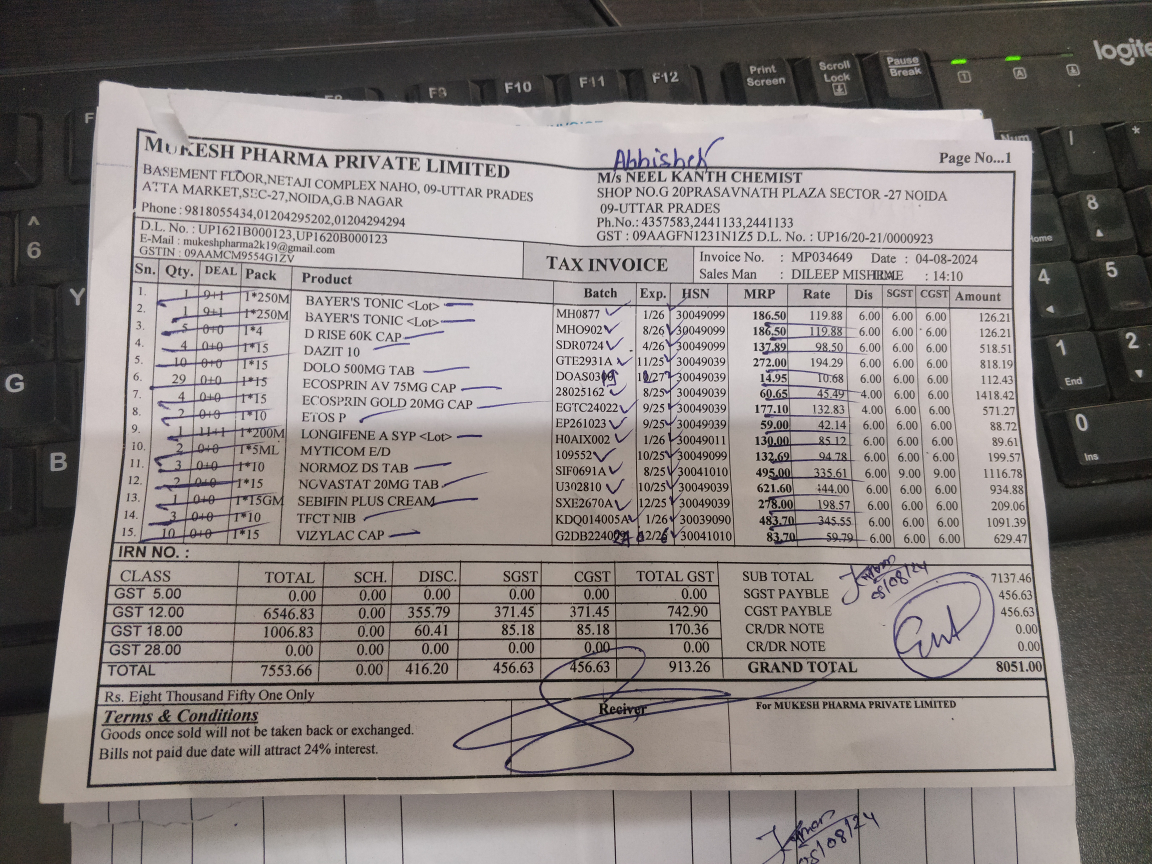 Print Screen
Scroll Lock
Pause Break
logite
F9
F10
F11
F12
MUKESH PHARMA PRIVATE LIMITED
BASEMENT FLOOR,NETAJI COMPLEX NAHO, 09-UTTAR PRADES
ATTA MARKET,SEC-27,NOIDA,G.B NAGAR
Phone : 9818055434,01204295202,01204294294
D.L. No. : UP1621B000123,UP1620B000123
E-Mail : mukeshpharma2k19@gmail.com
GSTIN : 09AAMCM9554G1ZV
Abhishek
Page No...1
M/s NEEL KANTH CHEMIST
SHOP NO.G 20PRASAVNATH PLAZA SECTOR -27 NOIDA
09-UTTAR PRADES
Ph.No.: 4357583,2441133,2441133
GST : 09AAGFN1231N1Z5 D.L. No. : UP16/20-21/0000923
TAX INVOICE
Invoice No. : MP034649 Date : 04-08-2024
Sales Man : DILEEP : 14:10
Sn. Qty. DEAL Pack Product Batch Exp. HSN MRP Rate Dis SGST CGST Amount
1. 1 9+1 1*250M BAYER'S TONIC <Lot> MH0877 1/26 30049099 186.50 119.88 6.00 6.00 6.00 126.21
2. 1 9+1 1*250M BAYER'S TONIC <Lot> MHO902 8/26 30049099 186.50 119.88 6.00 6.00 6.00 126.21
3. 5 0+0 1*4 D RISE 60K CAP SDR0724 4/26 30049099 137.89 98.50 6.00 6.00 6.00 518.51
4. 4 0+0 1*15 DAZIT 10 GTE2931A 11/25 30049039 272.00 194.29 6.00 6.00 6.00 818.19
5. 10 0+0 1*15 DOLO 500MG TAB 30049039 14.95 10.68 6.00 6.00 6.00 112.43
6. 29 0+0 1*15 ECOSPRIN AV 75MG CAP 28025162 8/25 30049039 60.65 45.49 4.00 6.00 6.00 1418.42
7. 4 0+0 1*15 ECOSPRIN GOLD 20MG CAP EGTC24022 9/25 30049039 177.10 132.83 4.00 6.00 6.00 571.27
8. 2 0+0 1*10 ETOS P EP261023 9/25 30049039 59.00 42.14 6.00 6.00 6.00 88.72
9. 1 11+1 1*200M LONGIFENE A SYP <Lot> H0AIX002 1/26 30049011 130.00 85.12 6.00 6.00 6.00 89.61
10. 2 0+0 1*5ML MYTICOM E/D 109552 10/25 30049099 132.69 94.78 6.00 6.00 6.00 199.57
11. 3 0+0 1*10 NORMOZ DS TAB SIF0691A 8/25 30041010 495.00 335.61 6.00 9.00 9.00 1116.78
12. 2 0+0 1*15 NOVASTAT 20MG TAB U302810 10/25 30049039 621.60 444.00 6.00 6.00 6.00 934.88
13. 1 0+0 1*15GM SEBIFIN PLUS CREAM SXE2670A 12/25 30049039 278.00 198.57 6.00 6.00 6.00 209.06
14. 3 0+0 1*10 TFCT NIB KDQ014005A 1/26 30039090 483.70 345.55 6.00 6.00 6.00 1091.39
15. 10 0+0 1*15 VIZYLAC CAP 30041010 83.70 59.79 6.00 6.00 6.00 629.47
IRN NO. :
CLASS TOTAL SCH. DISC. SGST CGST TOTAL GST
GST 5.00 0.00 0.00 0.00 0.00 0.00 0.00
GST 12.00 6546.83 0.00 355.79 371.45 371.45 742.90
GST 18.00 1006.83 0.00 60.41 85.18 85.18 170.36
GST 28.00 0.00 0.00 0.00 0.00 0.00 0.00
TOTAL 7553.66 0.00 416.20 456.63 456.63 913.26
SUB TOTAL 7137.46
SGST PAYBLE 456.63
CGST PAYBLE 456.63
CR/DR NOTE 0.00
CR/DR NOTE 0.00
GRAND TOTAL 8051.00
05/08/24
Rs. Eight Thousand Fifty One Only
Terms & Conditions
Goods once sold will not be taken back or exchanged.
Bills not paid due date will attract 24% interest.
Reciver
For MUKESH PHARMA PRIVATE LIMITED
05/08/24